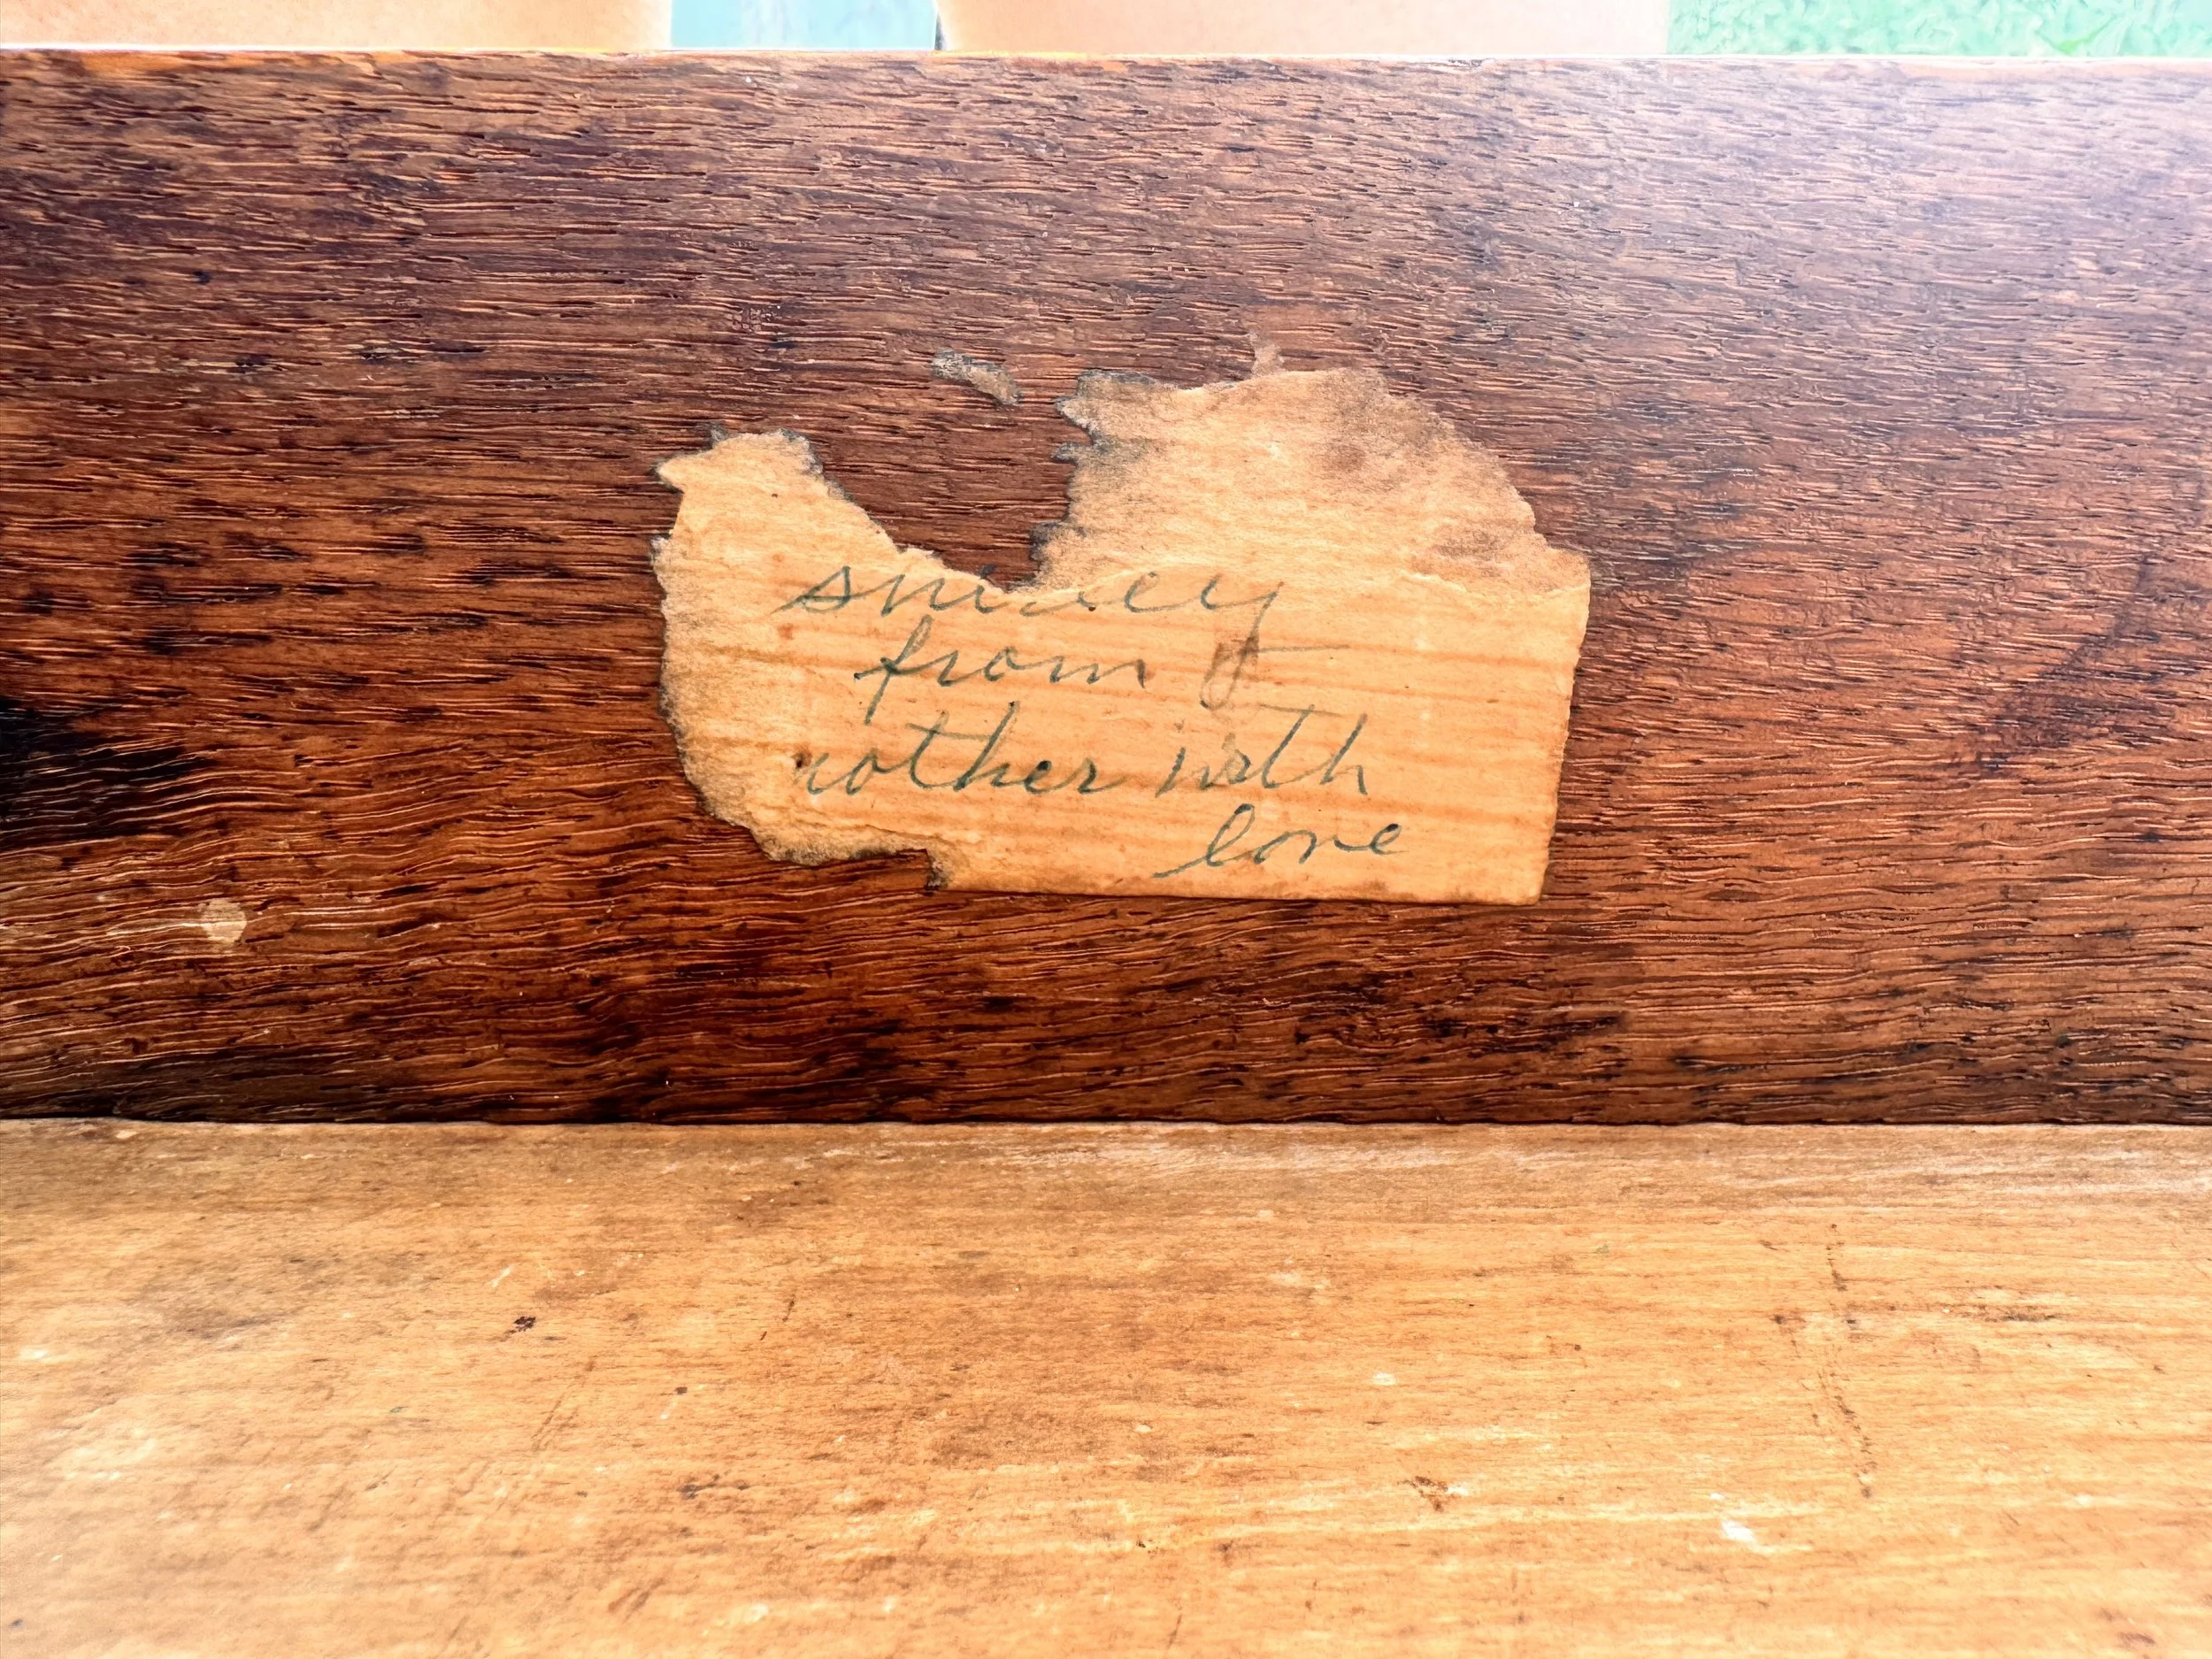 from
mother with
love